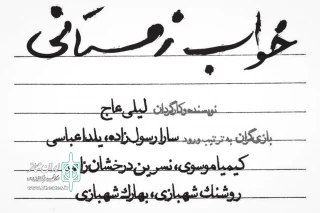 خواب زمستانی
نویسنده و کارگردان لیلی عاج
بازی‌گران به ترتیب ورود سارا رسول‌زاده، یلدا عباسی
کیمیا موسوی، نسرین درخشان‌زاده
روشنک شهبازی، بهارک شهبازی